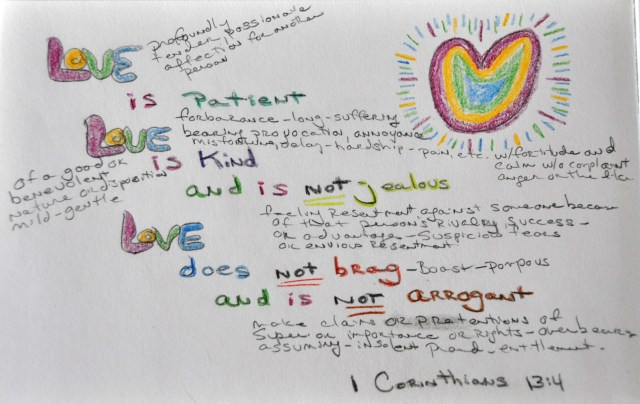 LOVE profoundly
tender, passionate
affection for another
person
is Patient
forbarance - long-suffering
bearing provocation, annoyance
misfortune, delay - hardship - pain, etc. w/fortitude and
calm w/o complaint
anger or the like
LOVE is Kind
of a good or
benevolent
nature or disposition
mild - gentle
and is NOT jealous
feeling Resentment against someone because
of that person's Rivalry success -
or advantage - suspicious fears
or envious resentment
LOVE
does NOT brag - Boast - Pompous
and is NOT arrogant
make claims or pretentions of
superior importance or Rights - overbearing
assuming - insolent proud - entitlement.
1 Corinthians 13:4